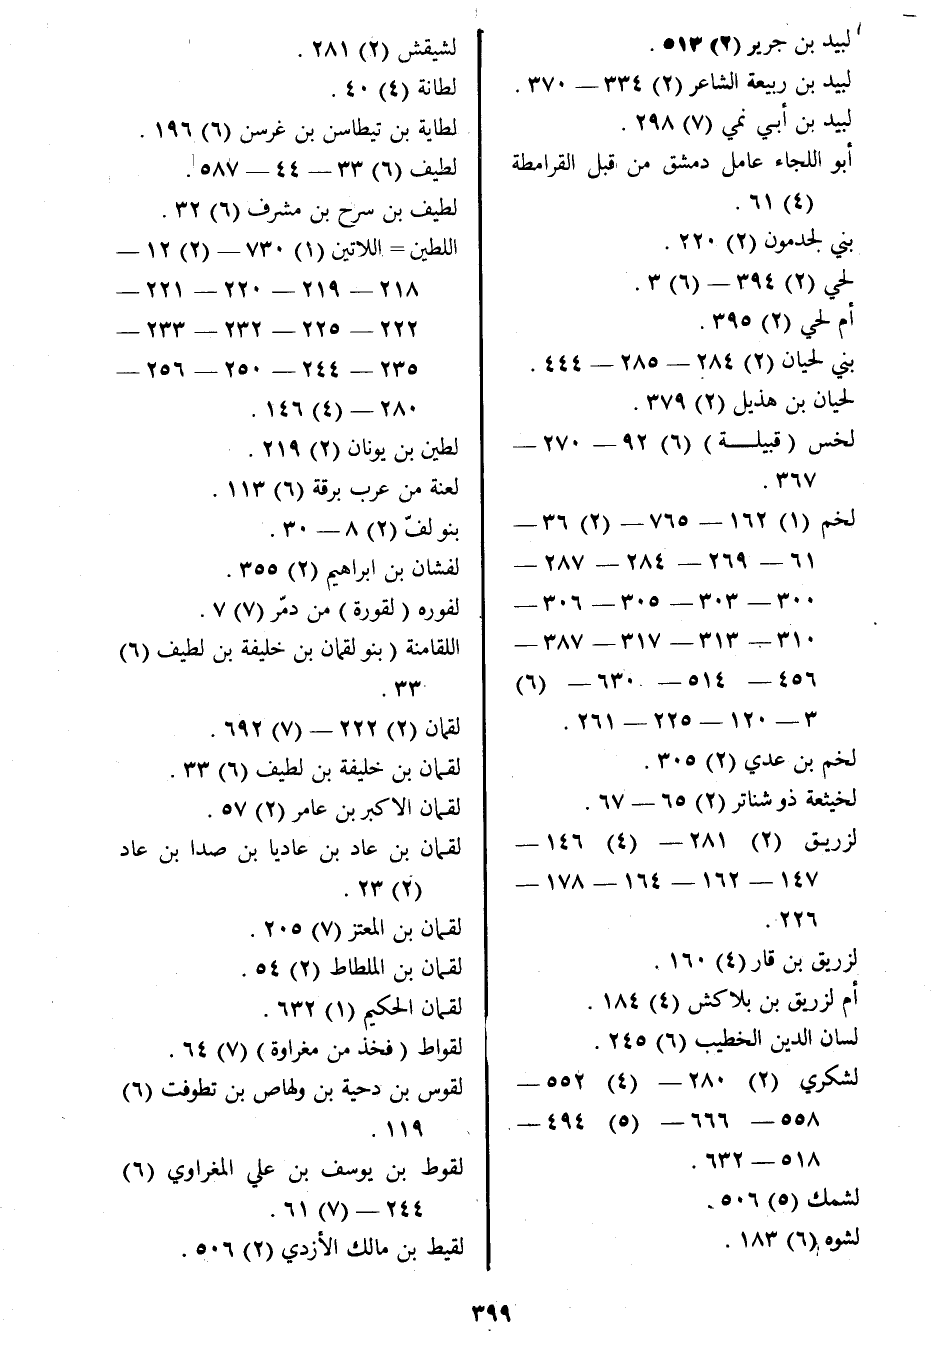 لبيد بن جرير (٢) ٥١٣ .
لبيد بن ربيعة الشاعر (٢) ٣٣٤ — ٣٧٠ .
لبيد بن أبي نمي (٧) ٢٩٨ .
أبو اللجاء عامل دمشق من قبل القرامطة
(٤) ٦١ .
بني لجدمون (٢) ٢٢٠ .
لحي (٢) ٣٩٤ — (٦) ٣ .
أم لحي (٢) ٣٩٥ .
بني لحيان (٢) ٢٨٤ — ٢٨٥ — ٤٤٤ .
لحيان بن هذيل (٢) ٣٧٩ .
لخس ( قبيلة ) (٦) ٩٢ — ٢٧٠ —
٣٦٧ .
لخم (١) ١٦٢ — ٧٦٥ — (٢) ٣٦ —
٦١ — ٢٦٩ — ٢٨٤ — ٢٨٧ —
٣٠٠ — ٣٠٣ — ٣٠٥ — ٣٠٦ —
٣١٠ — ٣١٣ — ٣١٧ — ٣٨٧ —
٤٥٦ — ٥١٤ — ٦٣٠ — (٦)
٣ — ١٢٠ — ٢٢٥ — ٢٦١ .
لخم بن عدي (٢) ٣٠٥ .
لخيثعة ذو شناتر (٢) ٦٥ — ٦٧ .
لزريق (٢) ٢٨١ — (٤) ١٤٦ —
١٤٧ — ١٦٢ — ١٦٤ — ١٧٨ —
٢٢٦ .
لزريق بن قار (٤) ١٦٠ .
أم لزريق بن بلاكش (٤) ١٨٤ .
لسان الدين الخطيب (٦) ٢٤٥ .
لشكري (٢) ٢٨٠ — (٤) ٥٥٢ —
٥٥٨ — ٦٦٦ — (٥) ٤٩٤ —
٥١٨ — ٦٣٢ .
لشمك (٥) ٥٠٦ .
لشوه (٦) ١٨٣ .
لشيقش (٢) ٢٨١ .
لطانة (٤) ٤٠ .
لطاية بن تيطاسن بن غرسن (٦) ١٩٦ .
لطيف (٦) ٣٣ — ٤٤ — ٥٨٧ .
لطيف بن سرح بن مشرف (٦) ٣٢ .
اللطين = اللاتين (١) ٧٣٠ — (٢) ١٢ —
٢١٨ — ٢١٩ — ٢٢٠ — ٢٢١ —
٢٢٢ — ٢٢٥ — ٢٣٢ — ٢٣٣ —
٢٣٥ — ٢٤٤ — ٢٥٠ — ٢٥٦ —
٢٨٠ — (٤) ١٤٦ .
لطين بن يونان (٢) ٢١٩ .
لعنة من عرب برقة (٦) ١١٣ .
بنو لفّ (٢) ٨ — ٣٠ .
لفشان بن ابراهيم (٢) ٣٥٥ .
لفوره ( لقورة ) من دمّر (٧) ٧ .
اللقامنة ( بنو لقمان بن خليفة بن لطيف (٦)
٣٣ .
لقمان (٢) ٢٢٢ — (٧) ٦٩٢ .
لقمان بن خليفة بن لطيف (٦) ٣٣ .
لقمان الاكبر بن عامر (٢) ٥٧ .
لقمان بن عاد بن عاديا بن صدا بن عاد
(٢) ٢٣ .
لقمان بن المعتز (٧) ٢٠٥ .
لقمان بن الملطاط (٢) ٥٤ .
لقمان الحكيم (١) ٦٣٢ .
لقواط ( فخذ من مغراوة ) (٧) ٦٤ .
لقوس بن دحية بن ولهاص بن تطوفت (٦)
١١٩ .
لقوط بن يوسف بن علي المغراوي (٦)
٢٤٤ — (٧) ٦١ .
لقيط بن مالك الأزدي (٢) ٥٠٦ .
٣٩٩